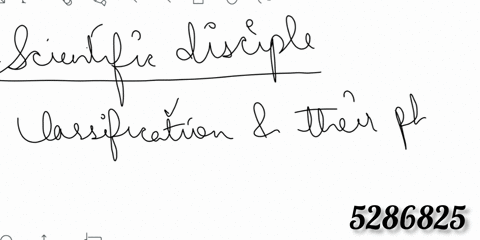 Scientific disciple
Classification & their ph
5286825